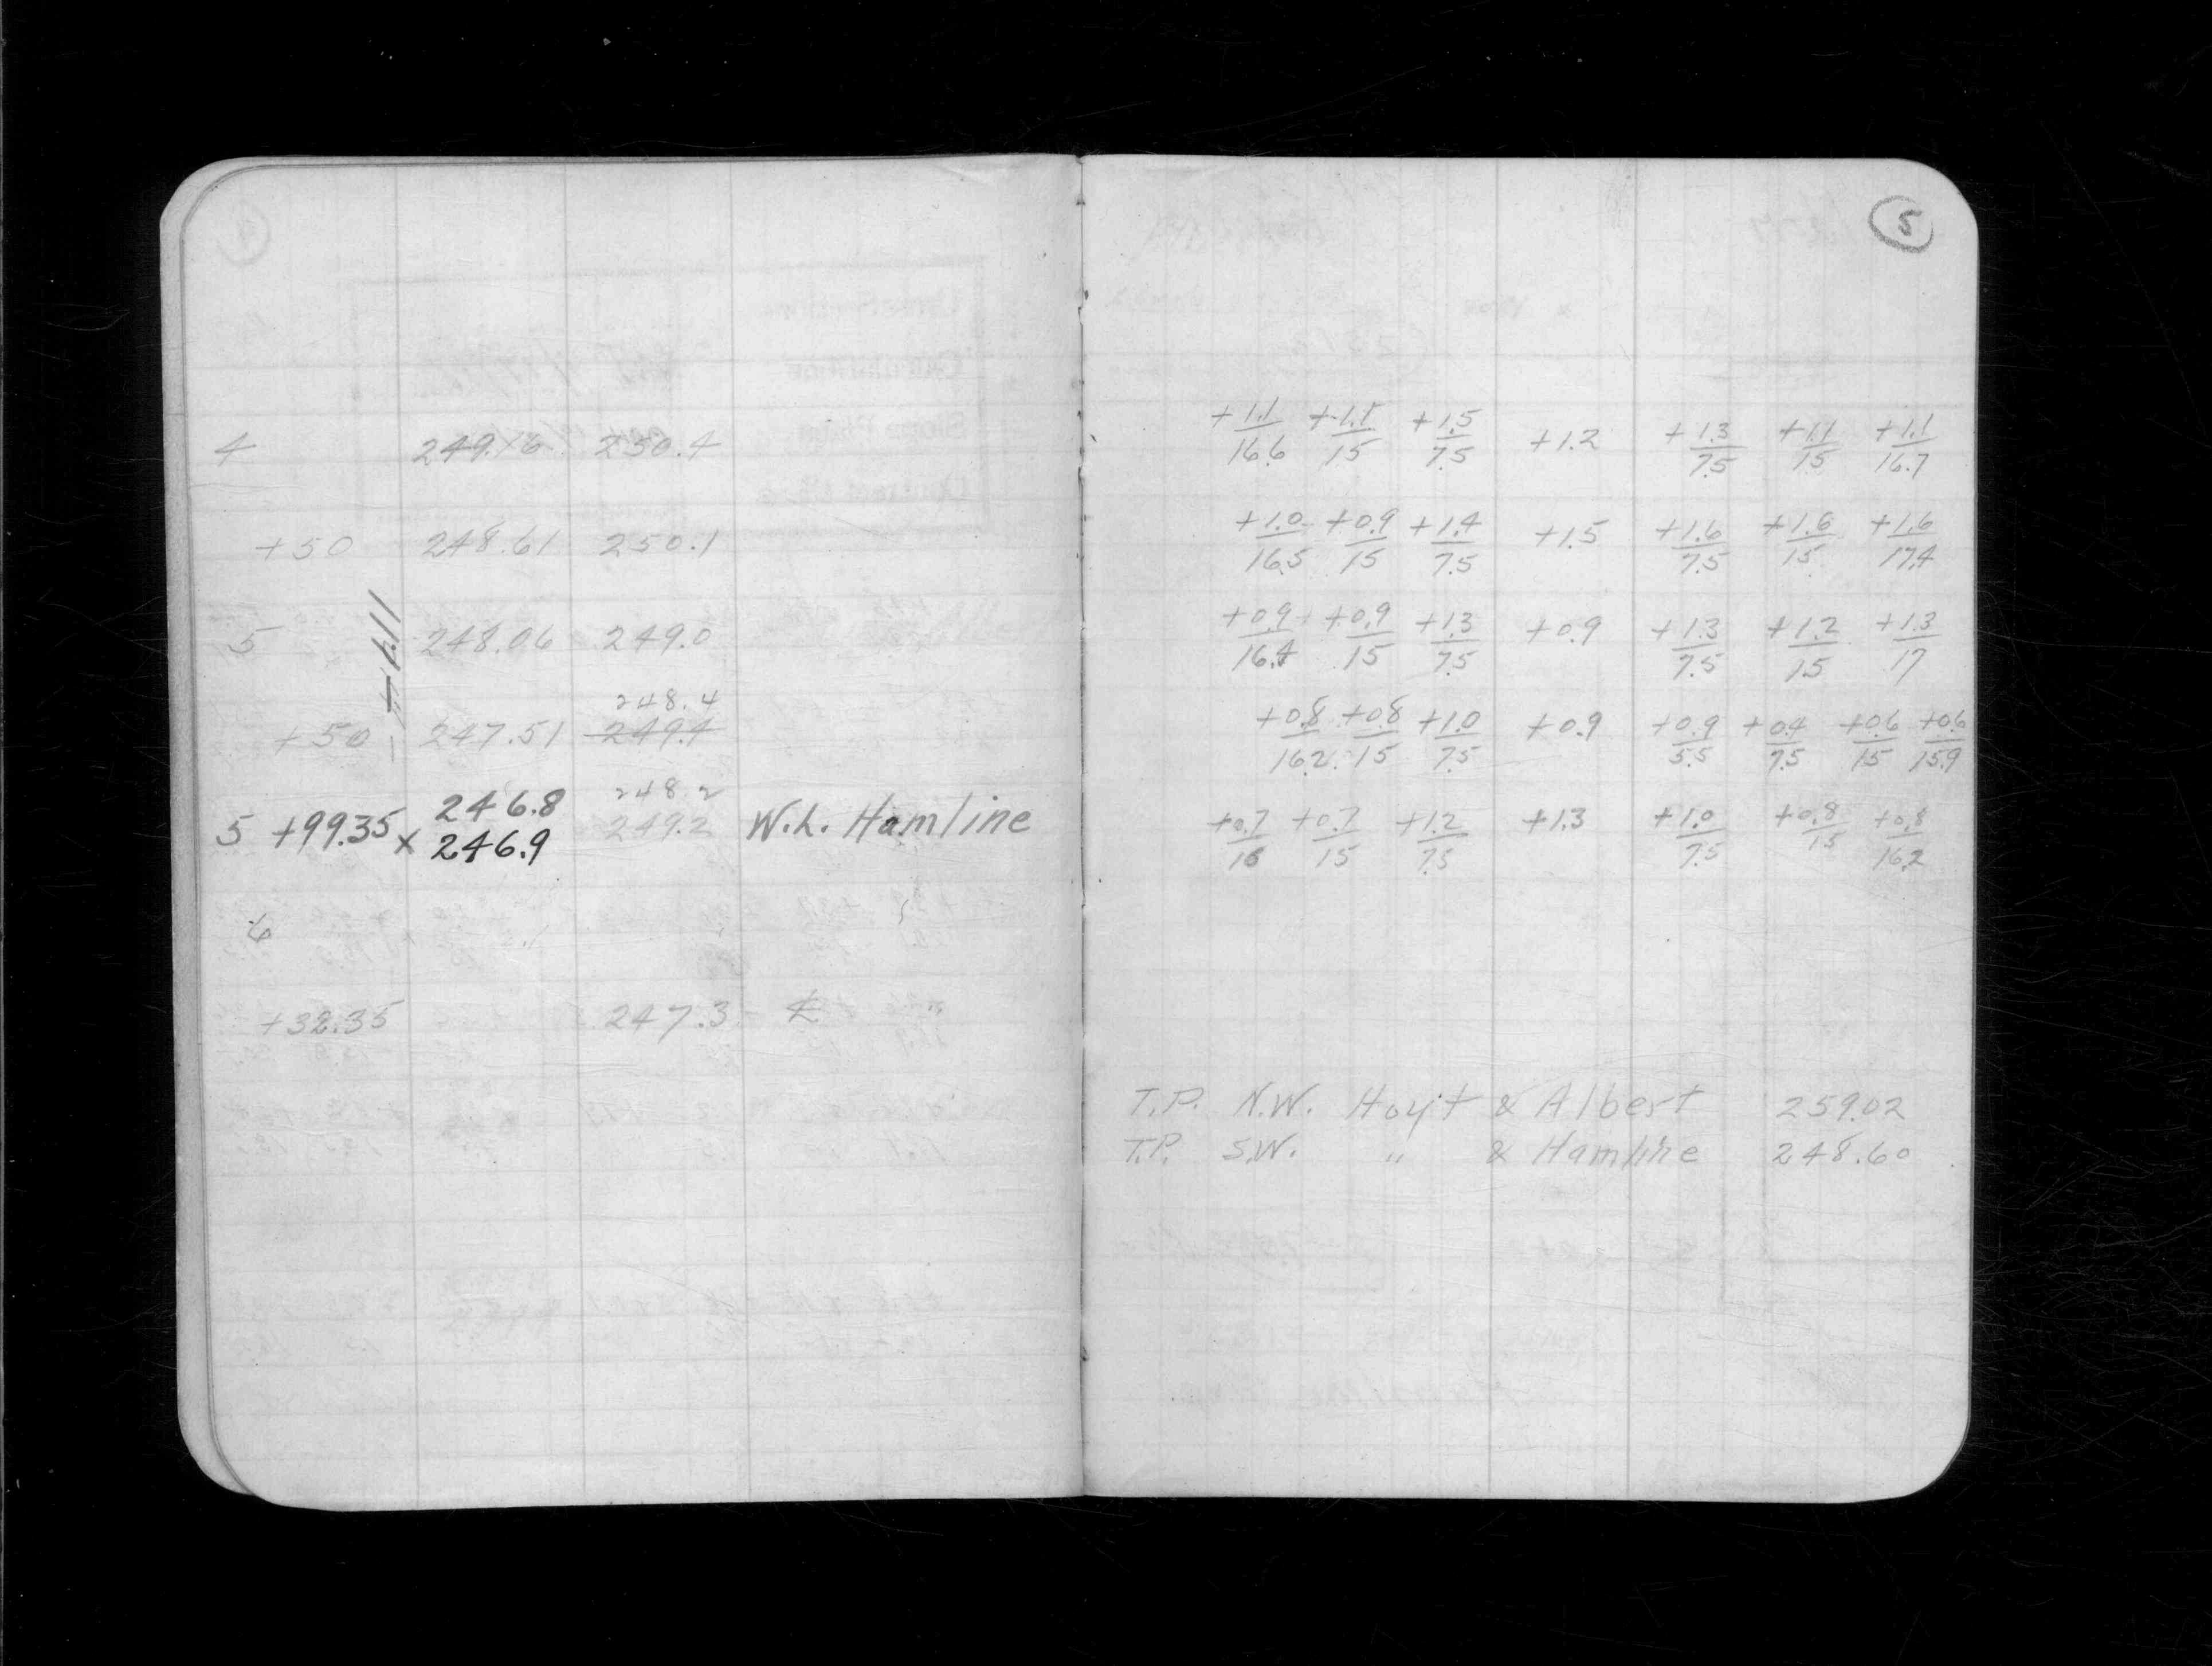 5
4 249.16 250.4
+1.1/16.6 +1.1/15 +1.5/7.5 +1.2 +1.3/7.5 +1.1/15 +1.1/16.7
+50 248.61 250.1
+1.0/16.5 +0.9/15 +1.4/7.5 +1.5 +1.6/7.5 +1.6/15 +1.6/17.4
5 248.06 249.0
+0.9/16.4 +0.9/15 +1.3/7.5 +0.9 +1.3/7.5 +1.2/15 +1.3/17
248.4
+50 247.51 249.4
+0.8/16.2 +0.8/15 +1.0/7.5 +0.9 +0.9/5.5 +0.4/7.5 +0.6/15 +0.6/15.9
246.8 248.2
5 +99.35 x 246.9 249.2 W.L. Hamline
+0.7/16 +0.7/15 +1.2/7.5 +1.3 +1.0/7.5 +0.8/15 +0.8/16.2
6
+32.35 247.3 ℄
T.P. N.W. Hoyt & Albert 259.02
T.P. S.W. " & Hamline 248.60